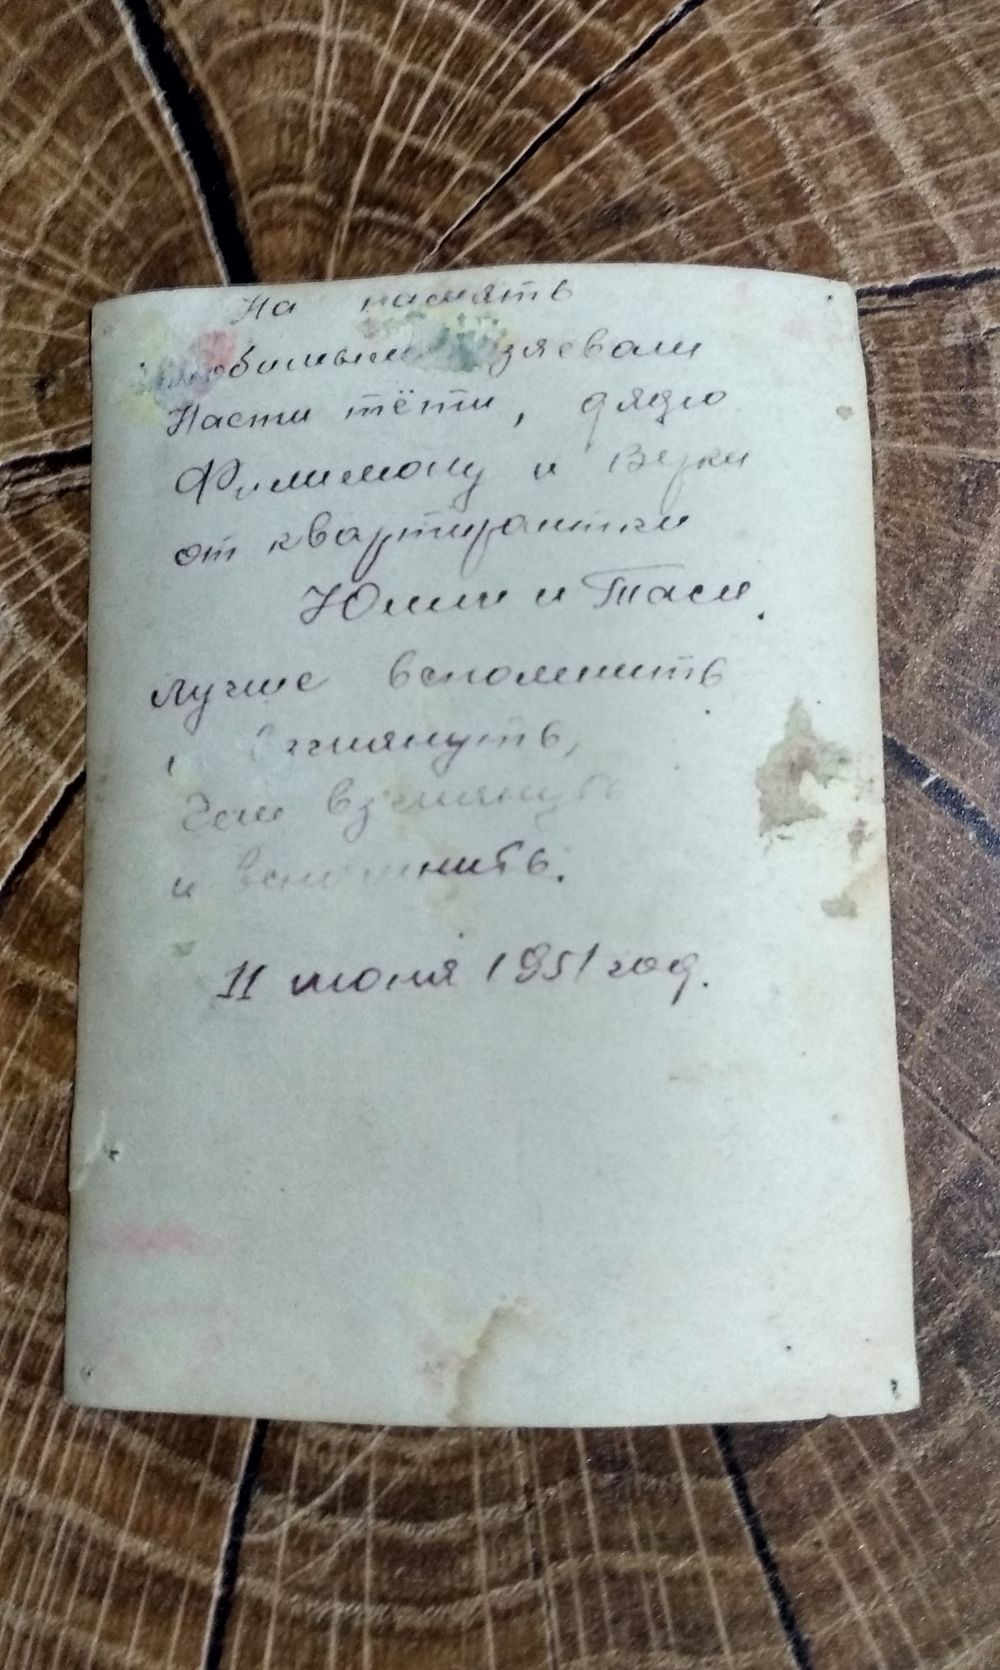 На память
любимым хозяевам
Насти тёти, дядю
Филимону и Верки
от квартирантки
Юлии и Таси.
Лучше вспомнить
и взглянуть,
Чем взглянуть
и вспомнить.
11 июня 1951 год.